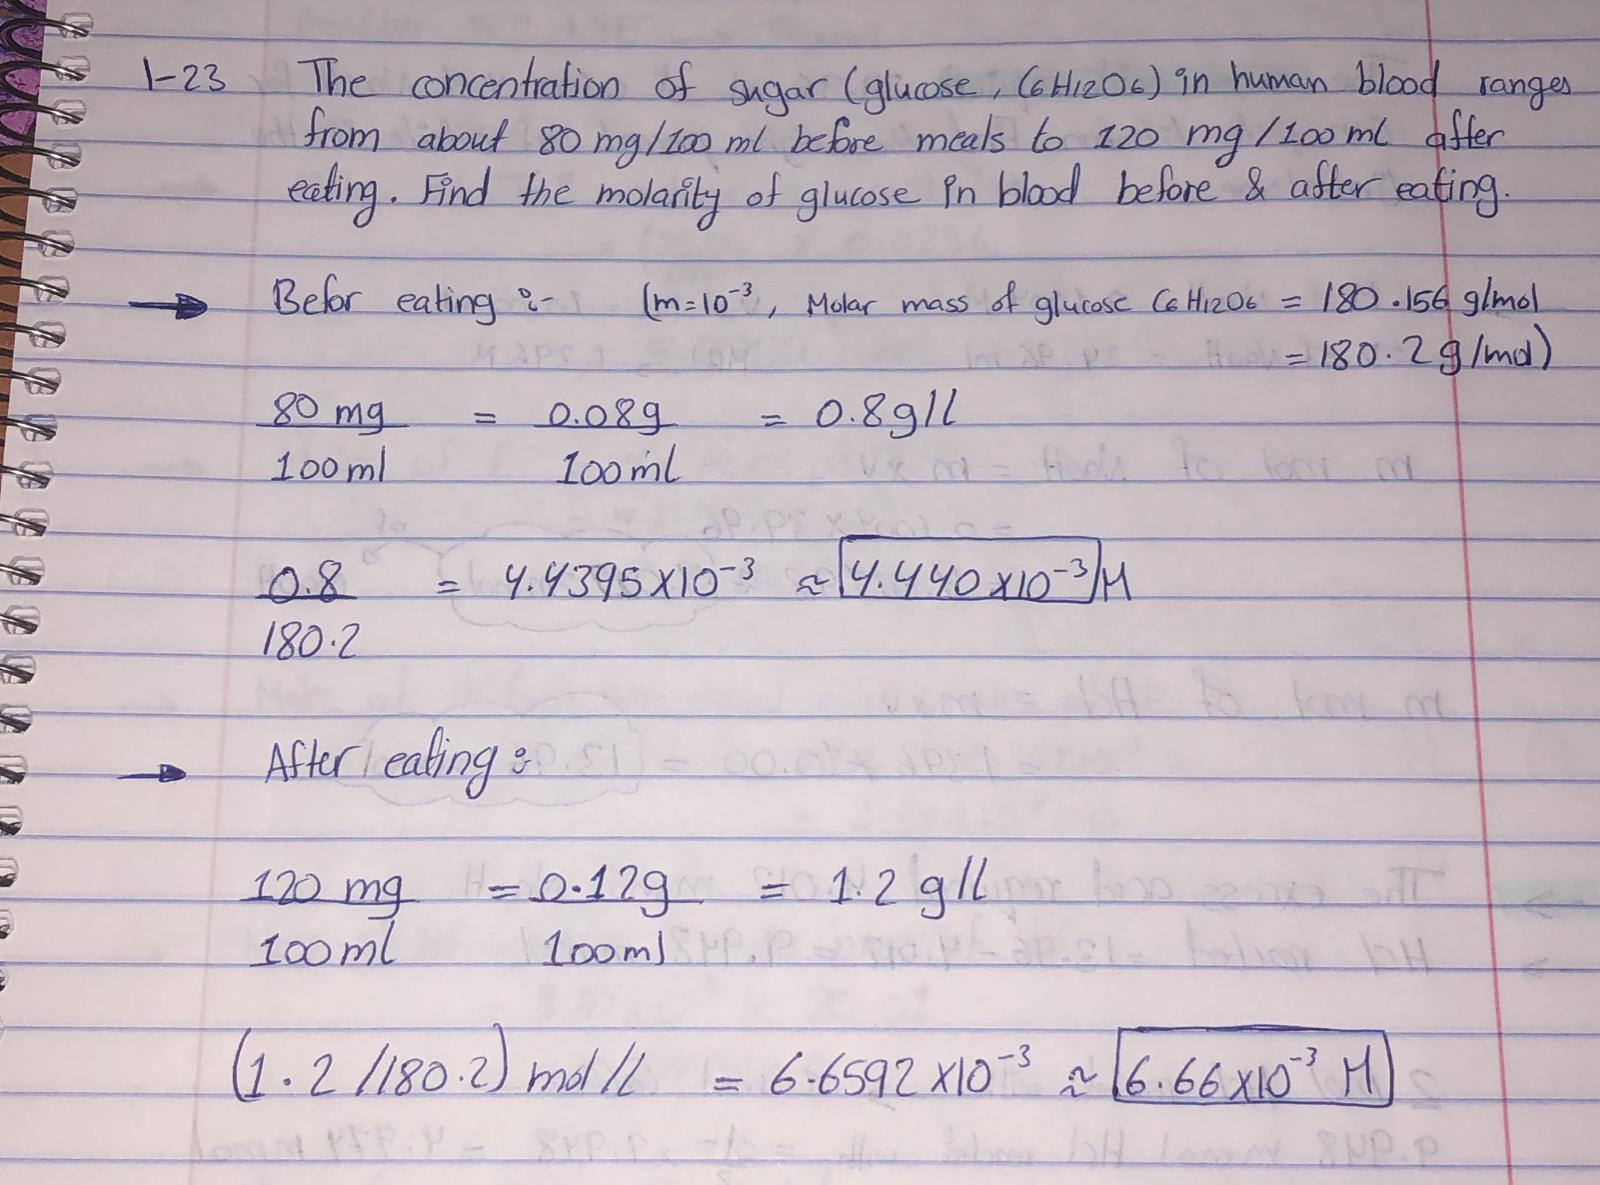 1-23 The concentration of sugar (glucose, C6H12O6) in human blood ranges
from about 80 mg/100 ml before meals to 120 mg/100 ml after
eating. Find the molarity of glucose in blood before & after eating.
Befor eating :- (m=10⁻³, Molar mass of glucose C6H12O6 = 180.156 g/mol
= 180.2 g/mol)
80 mg = 0.08g = 0.8g/l
100ml 100ml
0.8 = 4.4395x10⁻³ ≈ 4.440x10⁻³ M
180.2
After eating :-
120 mg = 0.12g = 1.2 g/l
100ml 100ml
(1.2/180.2) mol/L = 6.6592 x10⁻³ ≈ 6.66x10⁻³ M